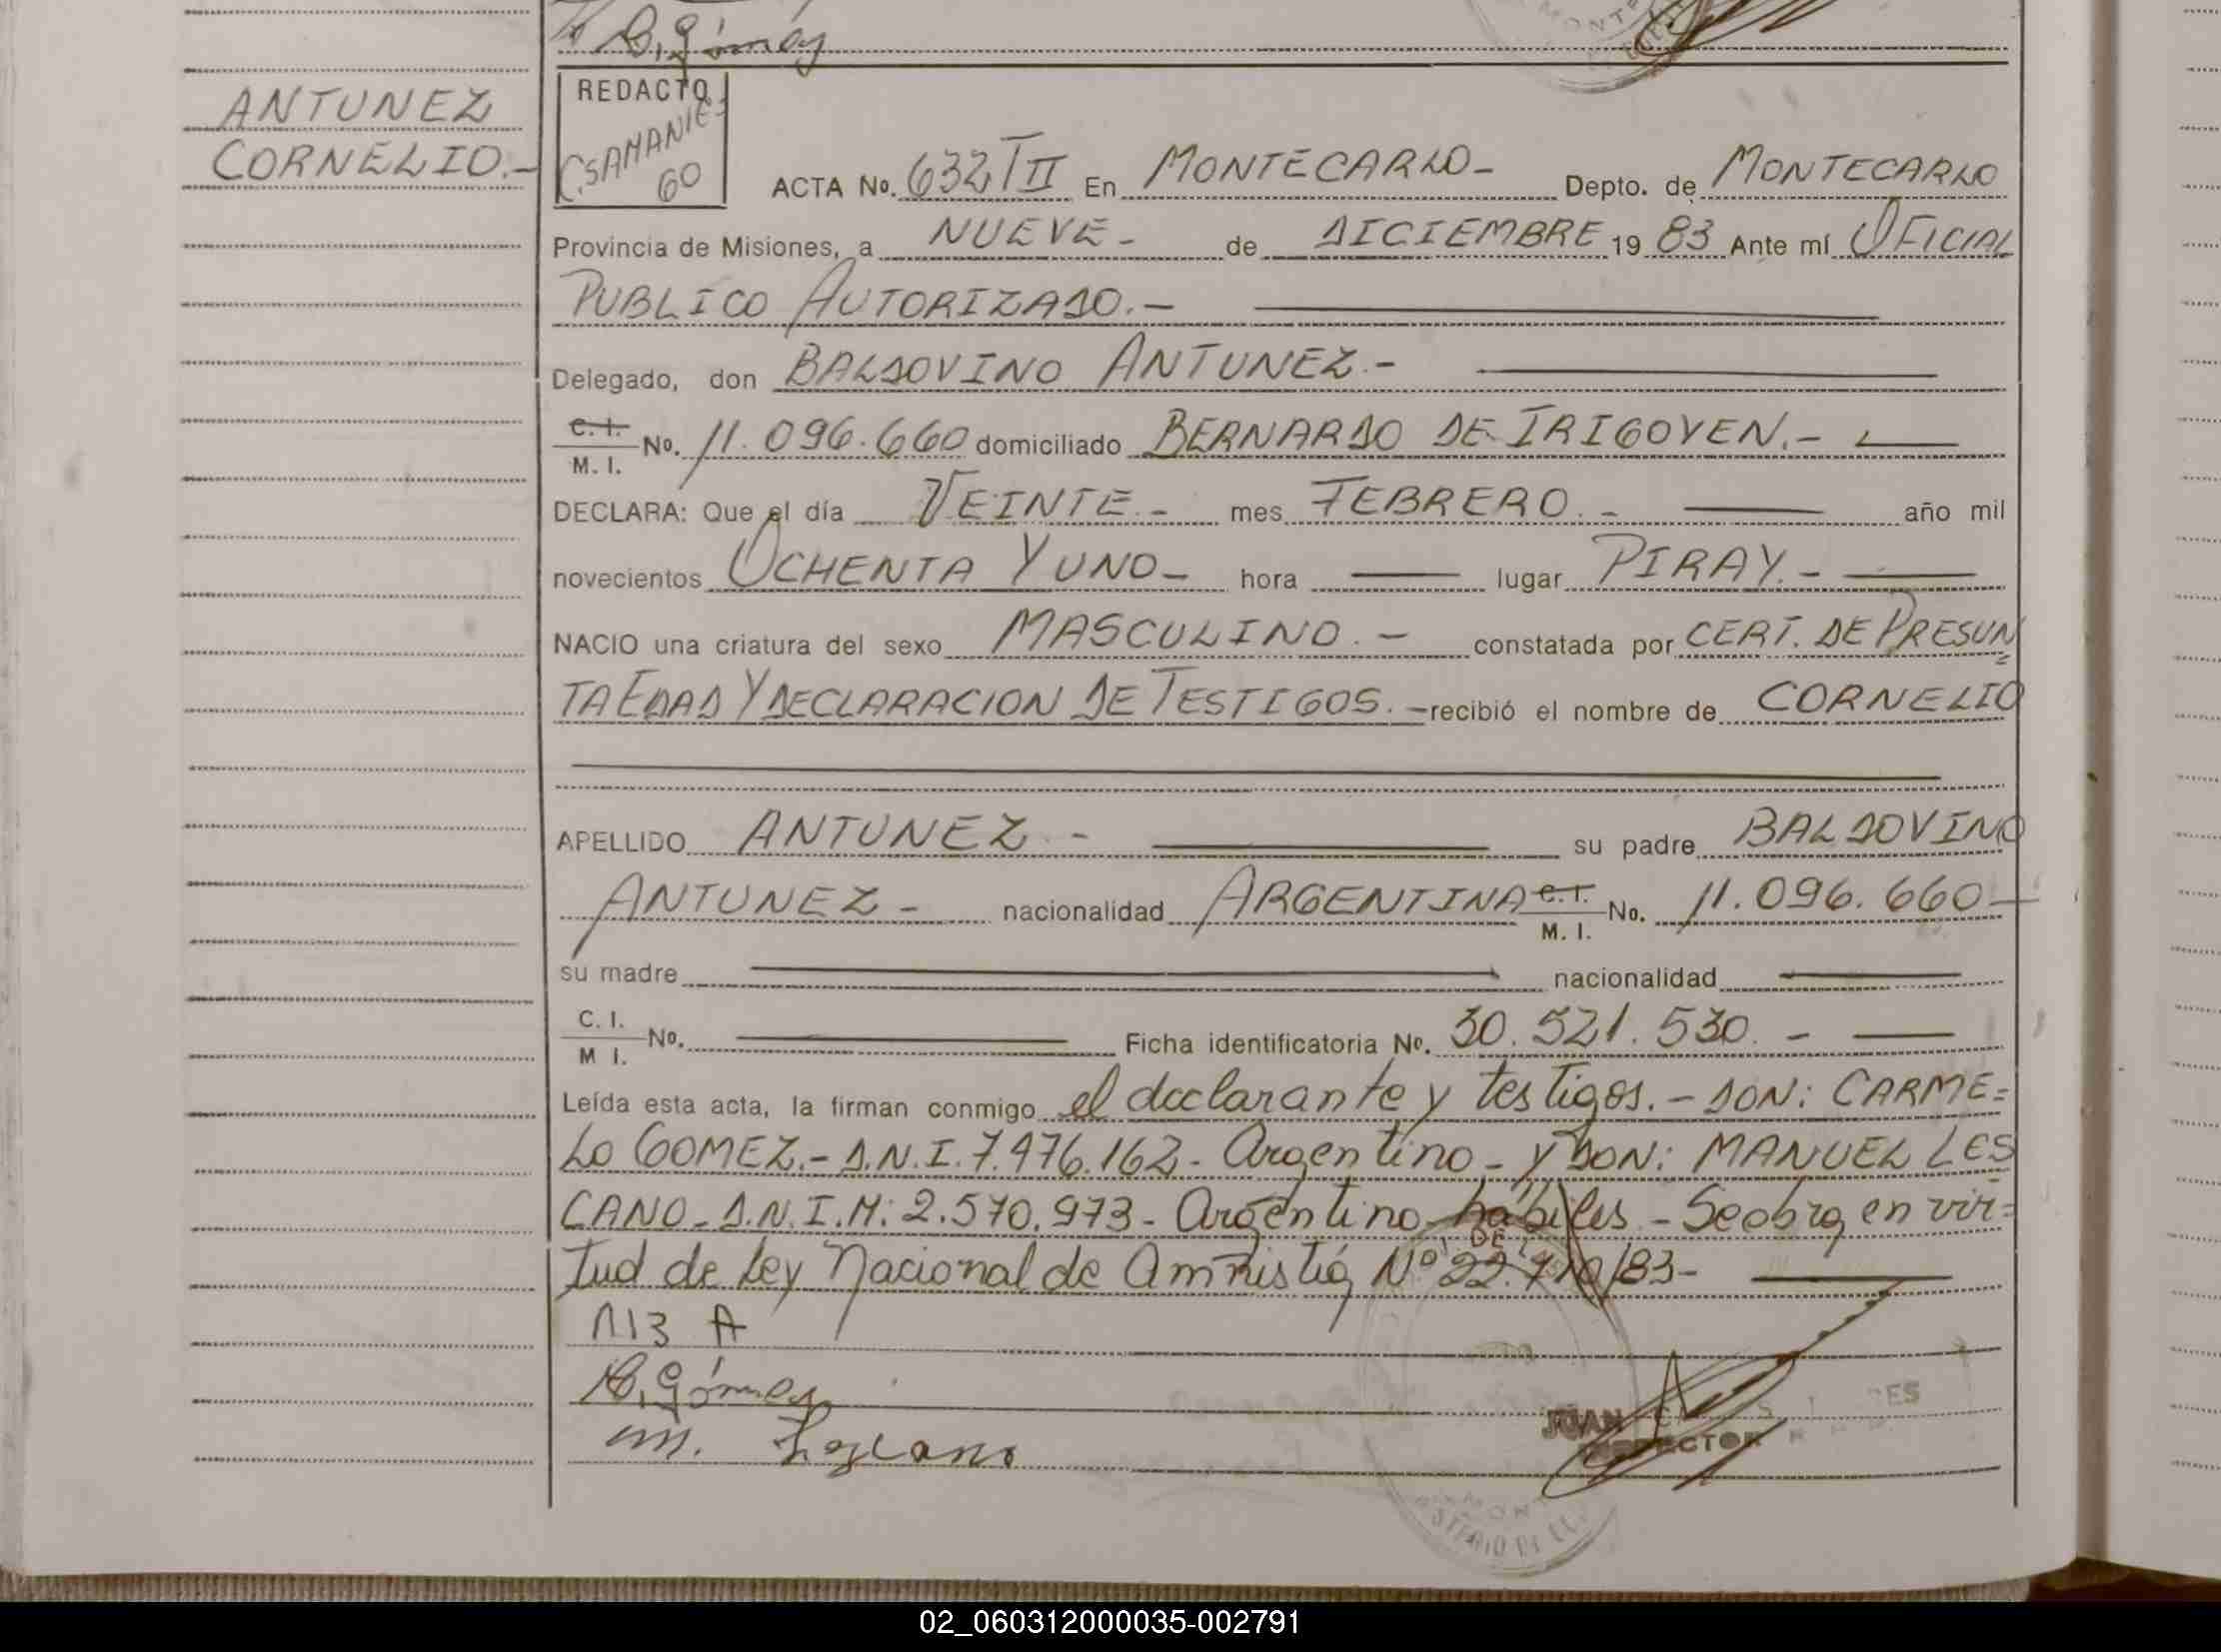 B. Gómez
ANTUNEZ
CORNELIO.-
REDACTO
60
ACTA No. 632 T II En MONTECARLO- Depto. de MONTECARLO
Provincia de Misiones, a NUEVE- de DICIEMBRE 19 83 Ante mí OFICIAL
PUBLICO AUTORIZADO.-
Delegado, don BALDOVINO ANTUNEZ.-
C. I. M. I. No. 11.096.660 domiciliado BERNARDO DE IRIGOYEN.-
DECLARA: Que el día VEINTE.- mes FEBRERO.- año mil
novecientos OCHENTA Y UNO- hora lugar PIRAY.-
NACIO una criatura del sexo MASCULINO.- constatada por CERT. DE PRESUN=
TA EDAD Y DECLARACION DE TESTIGOS.- recibió el nombre de CORNELIO
APELLIDO ANTUNEZ.- su padre BALDOVINO
ANTUNEZ- nacionalidad ARGENTINA C. I. M. I. No. 11.096.660-
su madre nacionalidad
C. I. M I. No. Ficha identificatoria No. 30.521.530.-
Leída esta acta, la firman conmigo el declarante y testigos.- DON: CARME=
LO GOMEZ.- D.N.I. 7.476.162- Argentino- y DON: MANUEL LES
CANO- D.N.I.M: 2.570.973- Argentino hábiles.- Se obra, en vir=
tud de Ley Nacional de Amnistía, Nº 22.710/83-
N13 A
B. Gómez
m. Lezcano
JUAN
02_060312000035-002791